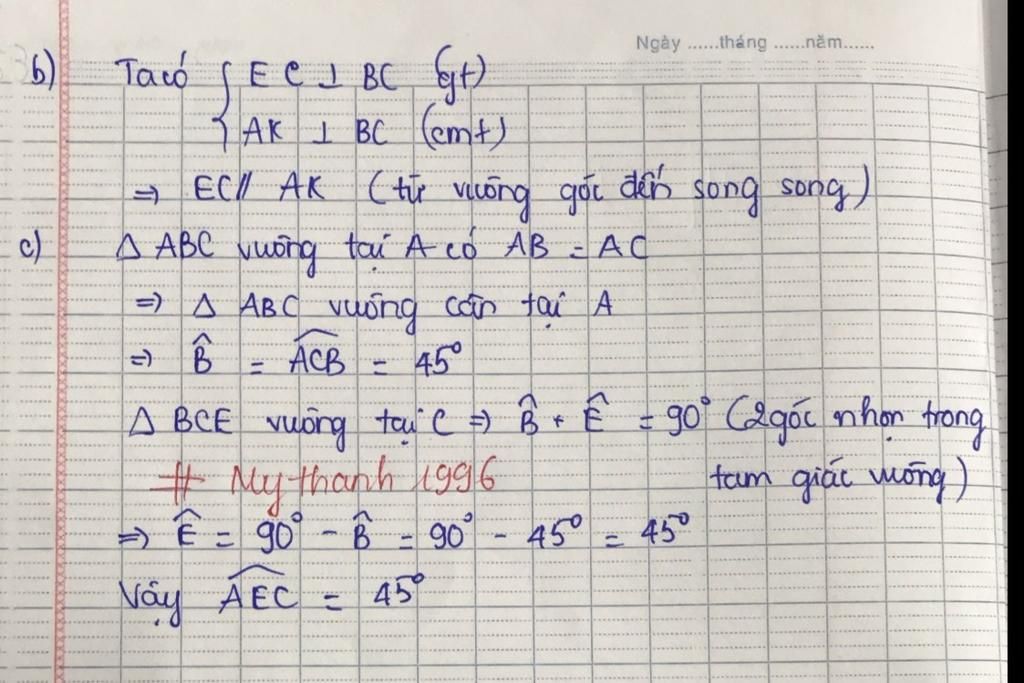 Ngày ......tháng ......năm......
b) Ta có { EC ⊥ BC (gt)
AK ⊥ BC (cmt)
⇒ EC // AK (từ vuông góc đến song song)
c) Δ ABC vuông tại A có AB = AC
⇒ Δ ABC vuông cân tại A
⇒ B̂ = \widehat{ACB} = 45°
Δ BCE vuông tại C ⇒ B̂ + Ê = 90° (2 góc nhọn trong
# Mythanh 1996 tam giác vuông)
⇒ Ê = 90° - B̂ = 90° - 45° = 45°
Vậy \widehat{AEC} = 45°